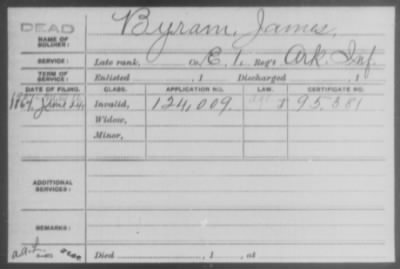 DEAD
NAME OF SOLDIER: Byram, James,
SERVICE: Late rank, Co. E, 1, Reg't Ark. Inf.
TERM OF SERVICE: Enlisted , 1 Discharged , 1
DATE OF FILING. CLASS. APPLICATION NO. LAW. CERTIFICATE NO.
1867, June 24, Invalid, 124,009. 95,581
Widow,
Minor,
ADDITIONAL SERVICES:
REMARKS:
Died , 1 , at